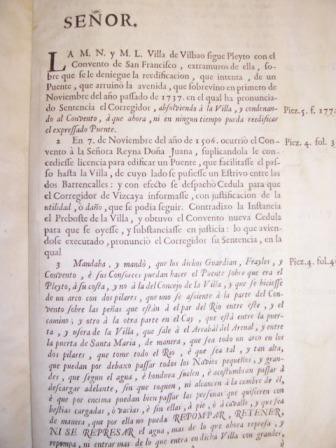 SEÑOR.
LA M. N. y M. L. Villa de Vilbao sigue Pleyto con el
Convento de San Francisco, extramuros de ella, so-
bre que se le deniegue la reedificacion, que intenta, de un
Puente, que arruinò la avenida, que sobrevino en primero de
Noviembre del año passado de 1737. en el qual ha pronuncia-
do Sentencia el Corregidor, absolviendo à la Villa, y condenan-
do al Convento, à que ahora, ni en ningun tiempo pueda reedificar
el expressado Puente.
Piez. 5. f. 177
2 En 7. de Noviembre del año de 1506. ocurriò el Conven-
to à la Señora Reyna Doña Juana, suplicandola le con-
cediesse licencia para edificar un Puente, que facilitasse el pas-
so hasta la Villa, de cuyo lado se pusiesse un Estrivo entre las
dos Barrencalles: y con efecto se despachò Cedula para que
el Corregidor de Vizcaya informasse, con justificacion de la
utilidad, ò daño, que se podia seguir. Contradixo la Instancia
el Preboste de la Villa, y obtuvo el Convento nueva Cedula
para que se oyesse, y substanciasse en justicia: lo que avien-
dose executado, pronunciò el Corregidor su Sentencia, en la
qual
Piez. 4. fol. 3
3 Mandaba, y mandò, que los dichos Guardian, Frayles, y
Convento, è sus Consortes puedan hacer el Puente sobre que era el
Pleyto, à su costa, y no à la del Concejo de la Villa, y que se hiciesse
de un arco con dos pilares, que uno se assiente à la parte del Con-
vento sobre las peñas que estàn à el par del Rio entre este, y el
camino; y otro à la otra parte en el Cay, que està entre la puer-
ta, y afuera de la Villa, que sale à el Arrabàl del Arenal, y entre
la puerta de Santa Maria, de manera, que sea todo un arco en los
dos pilares, que tome todo el Rio, è que sea tal, y tan alta,
que puedan por debaxo passar todos los Navios pequeños, y gran-
des, que segun el agua, è hondura suelen, è acostumbran passar à
descargar adelante, sin que toquen, ni alcancen à la cumbre de èl,
è que por encima puedan bien passar las personas que quisieren con
bestias cargadas, ò vacias, è sin ellas, à pie, ò à cavallo, y que sea
de manera, que por ella no pueda REPOMPAR, RETENER,
NI SE REPRESAR el agua, mas de lo que ahora represa, y
repompa, ni entrar mas de lo que entra en dicha Villa con grandes,
Piez. 4. fol. 49